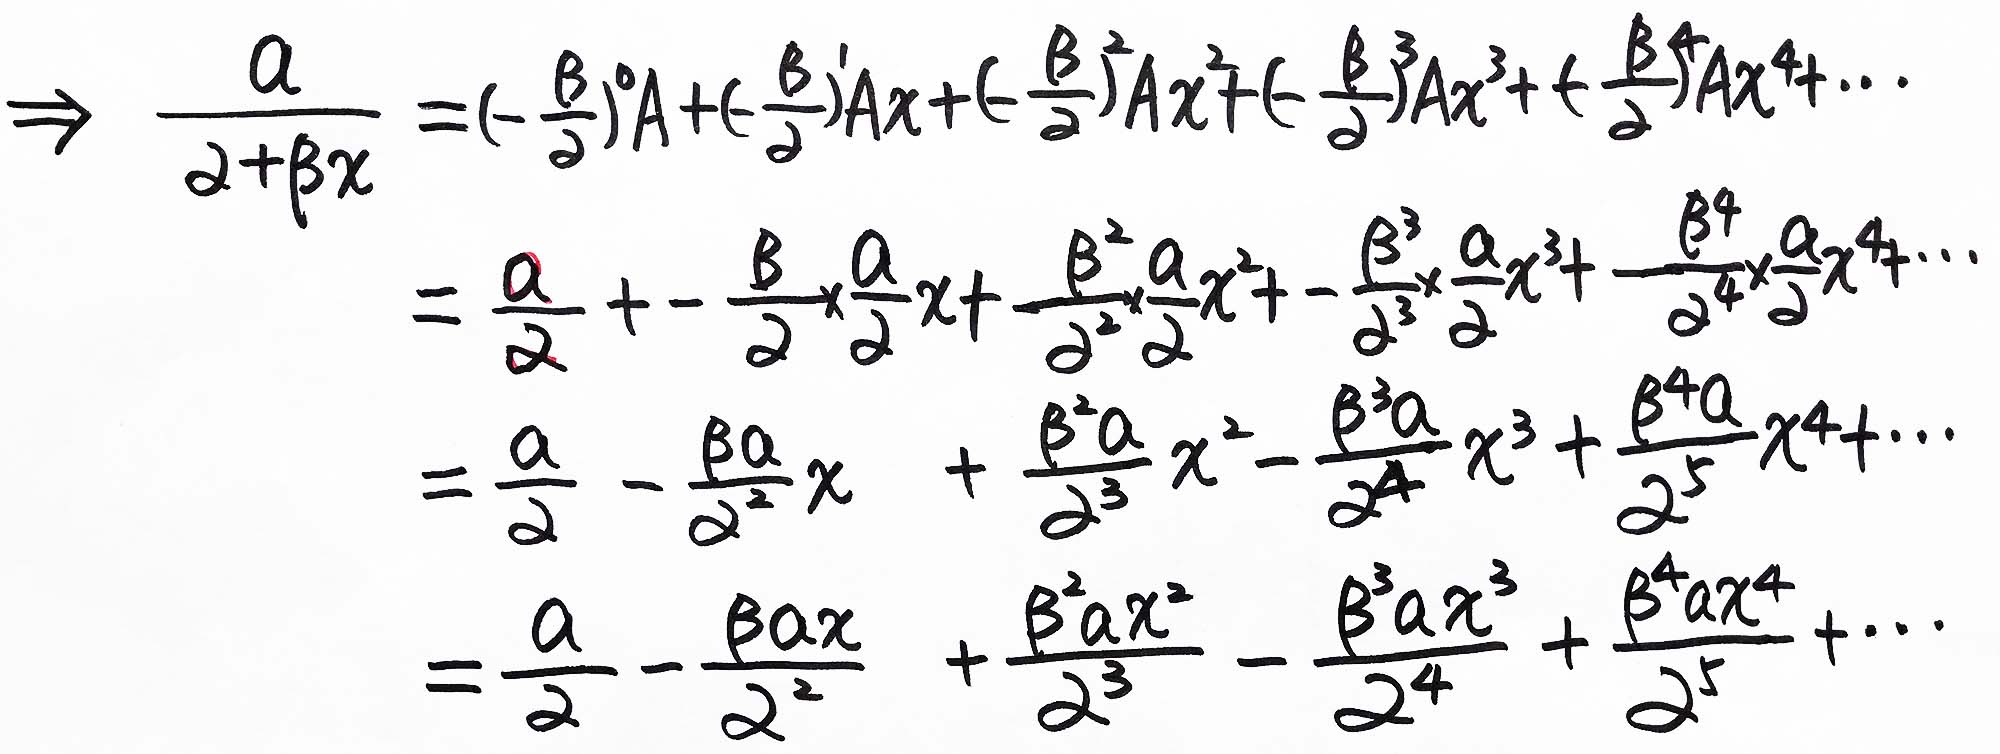 ⇒ a/(2+βx) = (-β/2)⁰A + (-β/2)¹Ax + (-β/2)²Ax² + (-β/2)³Ax³ + (-β/2)⁴Ax⁴ + ⋯
= a/2 + - β/2 × a/2 x + β²/2² × a/2 x² + - β³/2³ × a/2 x³ + β⁴/2⁴ × a/2 x⁴ + ⋯
= a/2 - βa/2² x + β²a/2³ x² - β³a/2⁴ x³ + β⁴a/2⁵ x⁴ + ⋯
= a/2 - βax/2² + β²ax²/2³ - β³ax³/2⁴ + β⁴ax⁴/2⁵ + ⋯